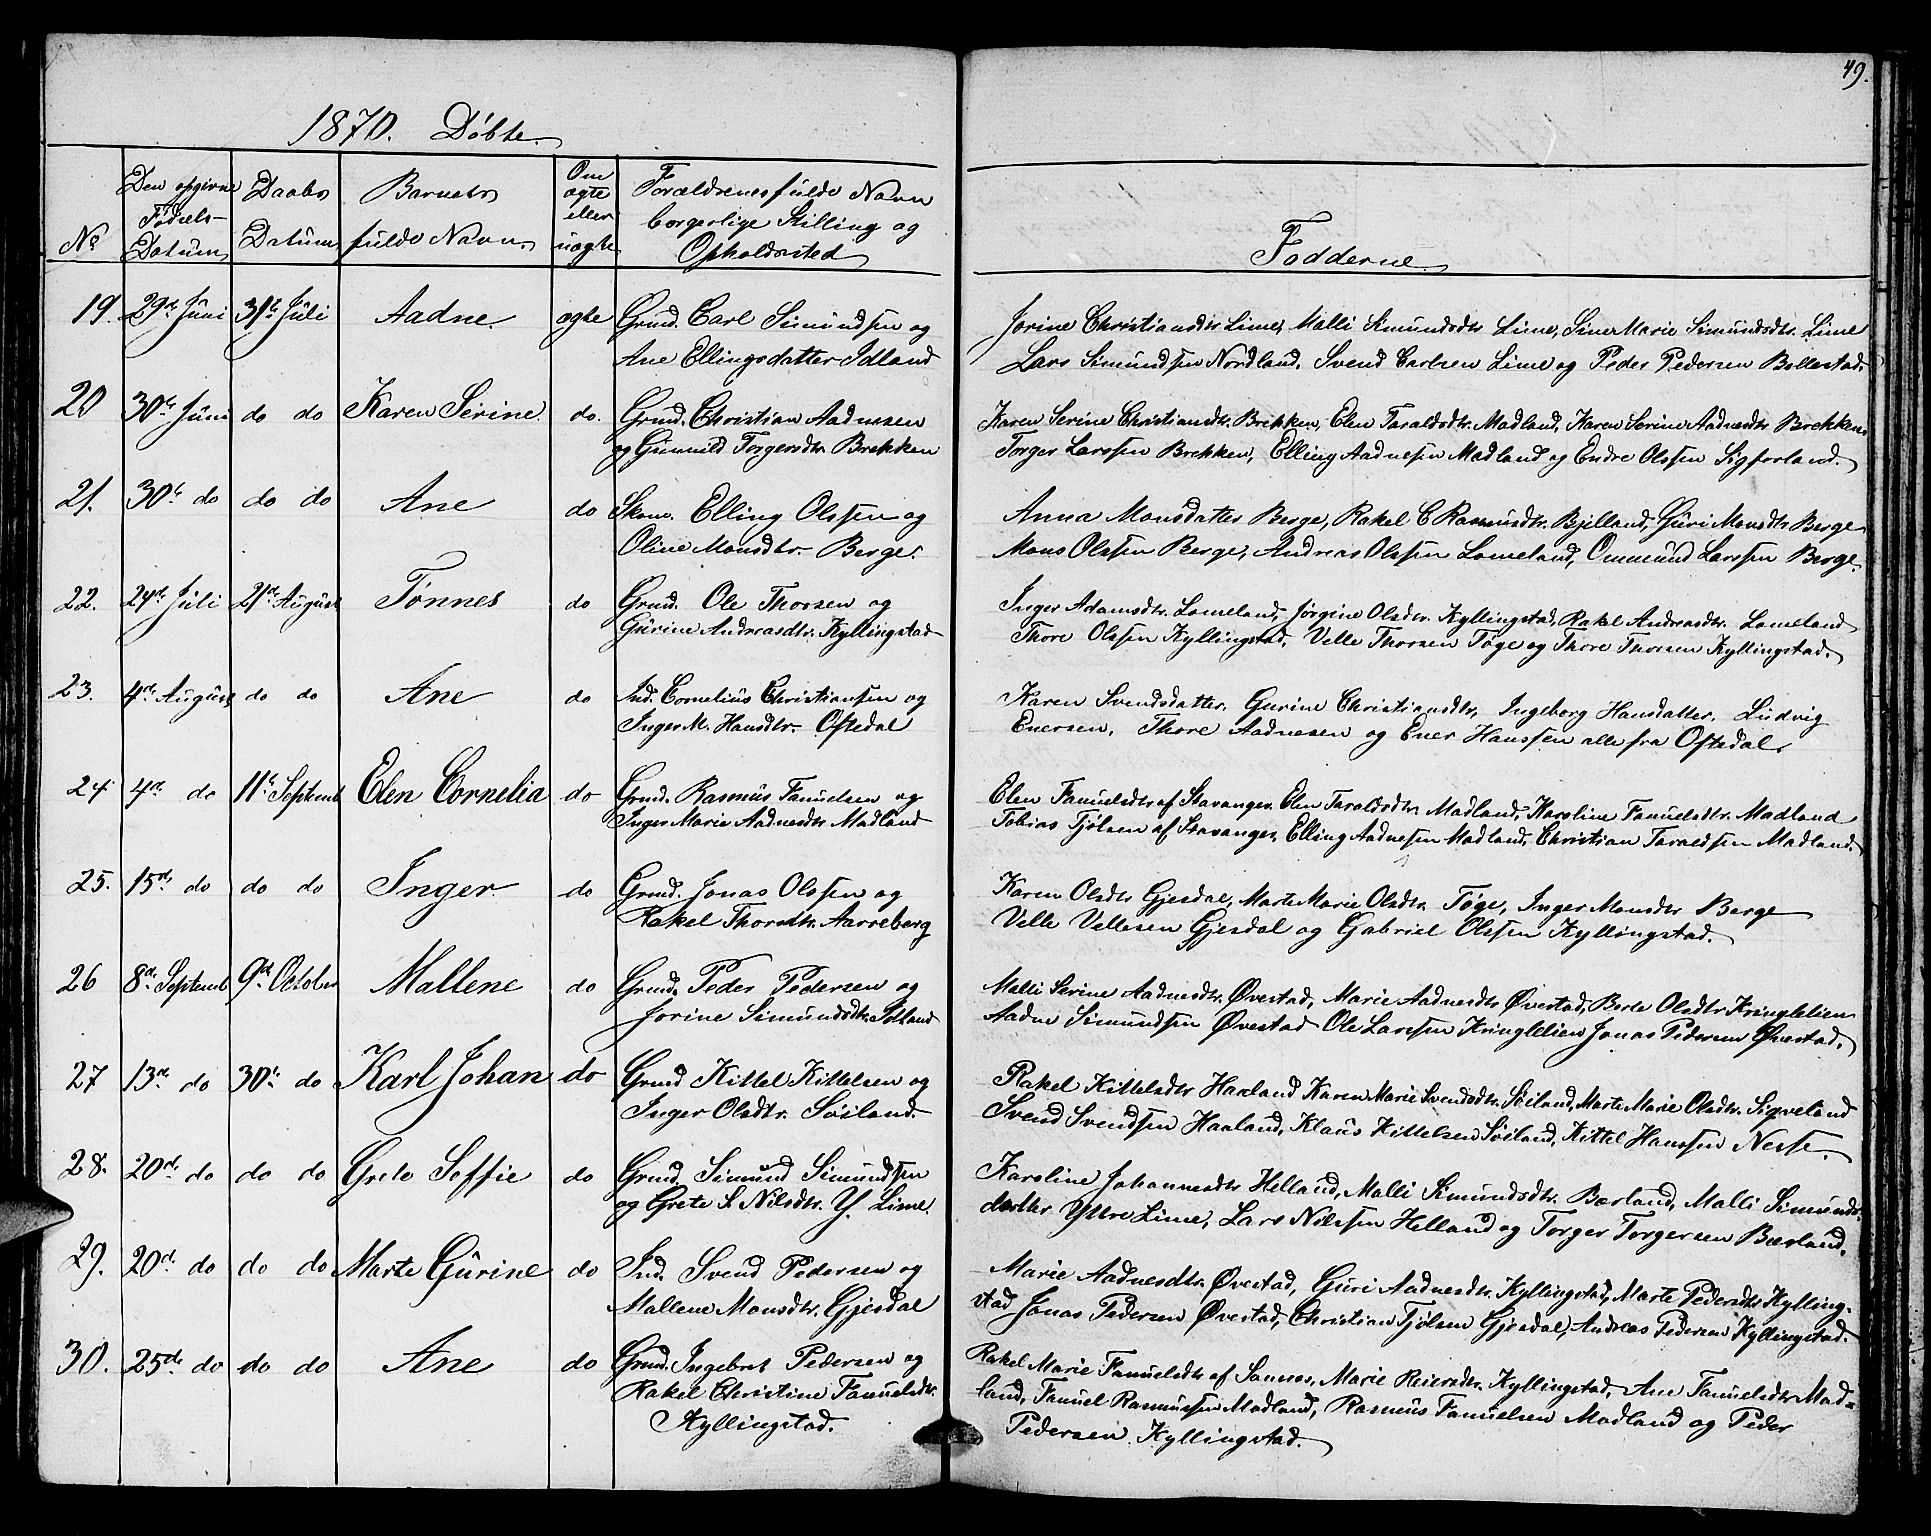 49.
1870. Døbte.
No
Den opgivne Fødsels-Datum
Daabs Datum
Barnets fulde Navn.
Om ægte eller uægte
Forældrenes fulde Navn borgerlige Stilling og Opholdssted
Fadderne
19. 29de Juni 31te Juli Aadne. ægte Grmd. Carl Simundsen og
Ane Ellingsdatter Idland
Jorine Christiansdtr. Lime, Malli Simundsdtr Lime, Sine Marie Simundsdtr. Lime
Lars Simundsen Nordland, Svend Carlsen Lime og Peder Pedersen Bollestad.
20 30te Juni do do Karen Serine. do. Grmd. Christian Aadnesen
og Gunnild Torgersdtr Brekken
Karen Serine Christiansdtr. Brekken, Elen Taraldsdtr. Madland, Karen Serine Aadnesdtr Brekken
Torger Larssen Brekken, Elling Aadnesen Madland og Endre Olssen
21. 30te do do do Ane do Elling Olssen og
Oline Monsdtr. Berge.
Anna Monsdatter Berge, Rakel C Rasmusdtr. Bjelland, Guri Monsdtr Berge
Mons Olssen Berge, Andreas Olssen Lomeland, Ommund Larssen Berge.
22. 24de Juli 21de August Tønnes do Grmd. Ole Thorsen og
Gurine Andreasdtr. Kyllingstad
Inger Adamsdtr. Lomeland, Jørgine Olsdtr. Kyllingstad, Rakel Andreasdtr. Lomeland
Thore Olssen Kyllingstad. Velle Thorsen Tøge og Thore Thorsen Kyllingstad.
23. 4de August do do Ane do Ind. Cornelius Christiansen og
Inger M. Hansdtr. Oftedal
Karen Svendsdatter, Gurine Christiansdtr, Ingeborg Hansdatter. Ludvig
Enersen, Thore Aadnesen og Ener Hanssen alle fra Oftedal.
24 4de do 11te Septemb Elen Cornelia do Grmd. Rasmus Fanuelsen og
Inger Marie Aadnesdtr. Madland
Elen Fanuelsdtr af Stavanger. Elen Taraldsdtr. Madland, Karoline Fanuelsdtr. Madland
Tobias Tjølsen af Stavanger, Elling Aadnesen Madland, Christian Taraldsen Madland.
25. 15de do do do Inger do Grmd. Jonas Olssen og
Rakel Thorsdtr. Aarreberg
Karen Olsdtr Gjesdal, Marte Marie Olsdtr. Tøge, Inger Monsdtr Berge
Velle Vellesen Gjesdal og Gabriel Olssen Kyllingstad.
26 8de Septemb 9de October Mallene do Grmd. Peder Pedersen og
Jorine Simundsdtr.
Malli Serine Aadnesdtr. Øvestad, Marie Aadnesdtr Øvestad, Berte Olsdtr Kringlelien
Aadne Simundsen Øvestad Ole Larssen Kringlelien Jonas Pedersen Øvestad.
27 13de do 30te do Karl Johan do Grmd Kittel Kittelsen og
Inger Olsdtr. Søiland.
Rakel Kittelsdtr Haaland Karen Marie Svendsdtr. Søiland, Marte Marie Olsdtr. Sigveland
Svend Svendsen Haaland, Klaus Kittelsen Søiland, Kittel Hanssen Nesse.
28. 20de do do do Grete Soffie do Grmd. Simund Simundsen
og Grete S. Nilsdtr. Y. Lime.
Karoline Johannesdtr Helland, Malli Simundsdtr. Bærland, Malli Simunds-
datter Yttre Lime, Lars Nilssen Helland og Torger Torgersen Bærland.
29. 20de do do do Marte Gurine do Ind. Svend Pedersen og
Mallene Monsdtr. Gjesdal
Marie Aadnesdtr. Øvestad, Guri Aadnesdtr. Kyllingstad, Marte Pedersdtr Kylling-
stad Jonas Pedersen Øvestad, Christian Tjølsen Gjesdal, Andreas Pedersen Kyllingstad.
30. 25de do do do Ane do Grmd. Ingebret Pedersen og
Rakel Christine Fanuelsdtr.
Kyllingstad.
Rakel Marie Fanuelsdtr af Sannes, Marie Reiersdtr. Kyllingstad, Ane Fanuelsdtr Mad-
land, Fanuel Rasmussen Madland, Rasmus Fanuelsen Madland og Peder
Pedersen Kyllingstad.